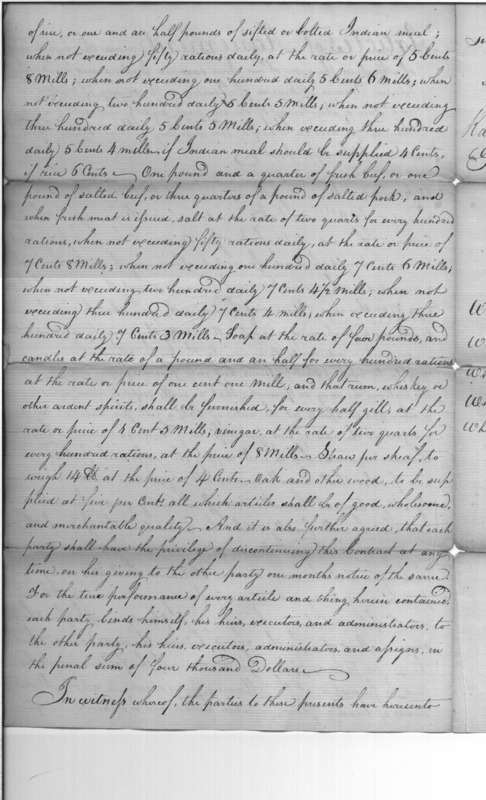 of rice, or one and an half pounds of sifted or bolted Indian meal;
when not exceeding fifty rations daily, at the rate or price of 5 Cents
8 Mills; when not exceeding one hundred daily 5 Cents 6 Mills; when
not exceeding two hundred daily 5 Cents 5 Mills, when not exceeding
three hundred daily 5 Cents 5 Mills; when exceeding three hundred
daily 5 Cents 4 mills if Indian meal should be supplied 4 Cents,
if rice 6 Cents — One pound and a quarter of fresh beef, or one
pound of salted beef, or three quarters of a pound of salted pork, and
when fresh meat is issued, salt at the rate of two quarts for every hundred
rations, when not exceeding fifty rations daily, at the rate or price of
7 Cents 8 Mills; when not exceeding one hundred daily 7 Cents 6 Mills;
when not exceeding two hundred daily 7 Cents 4½ Mills; when not
exceeding three hundred daily 7 Cents 4 mills; when exceeding three
hundred daily 7 Cents 3 Mills — Soap at the rate of four pounds, and
candles at the rate of a pound and an half for every hundred rations
at the rate or price of one cent one Mill, and that rum, whiskey or
other ardent spirits, shall be furnished, for every half gill, at the
rate or price of 1 Cent 5 Mills; vinegar, at the rate of two quarts for
every hundred rations, at the price of 8 Mills — Straw per sheaf, to
weigh 14 lb at the price of 4 Cents — Oak and other wood, to be sup
plied at five per Cent. all which articles shall be of good, wholesome,
and merchantable quality — And it is also further agreed, that each
party shall have the privilege of discontinuing this Contract at any
time, on his giving to the other party one months notice of the same.
For the true performance of every article and thing herein contained,
each party binds himself, his heirs, executors, and administrators, to
the other party, his heirs, executors, administrators and assigns, in
the penal sum of Four thousand Dollars —
In witness whereof, the parties to these presents have hereunto